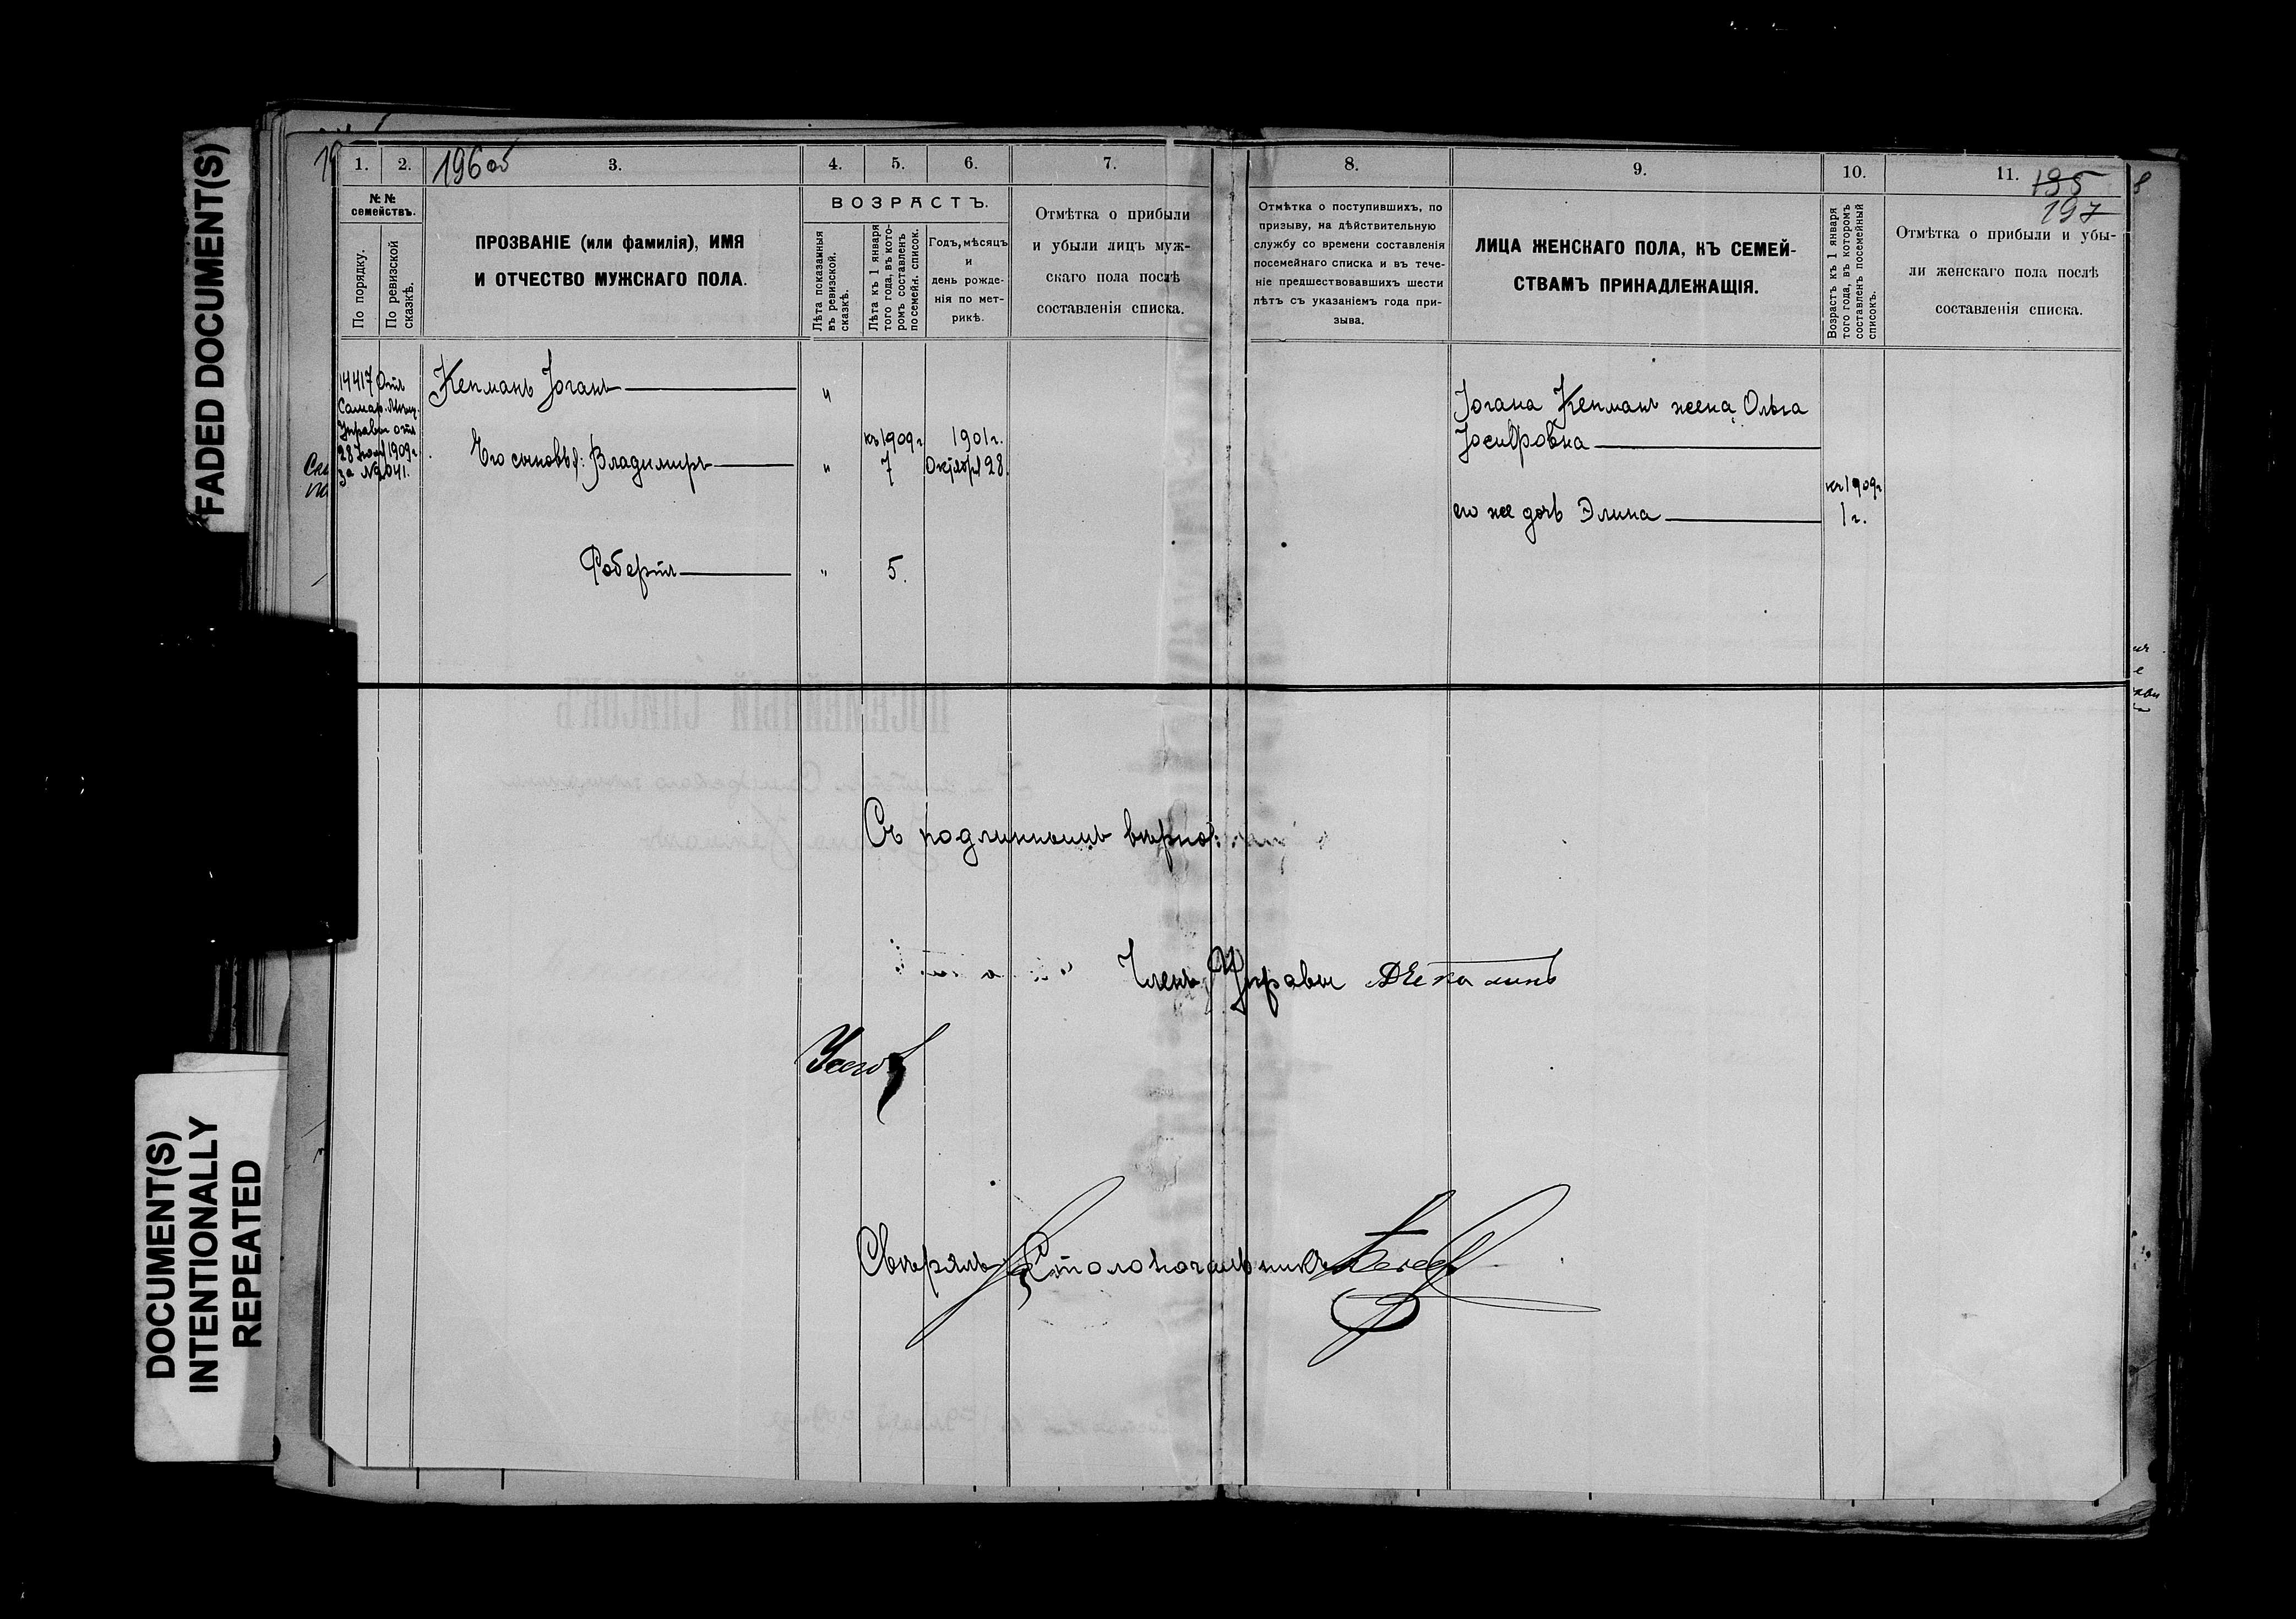 FADED DOCUMENT(S)
DOCUMENT(S)
INTENTIONALLY
REPEATED
1. 2. 3. 4. 5. 6. 7. 8. 9. 10. 11.
196 об
195
197
№ №
семействъ.
По порядку.
По ревизской
сказкѣ.
ПРОЗВАНІЕ (или фамилія), ИМЯ
И ОТЧЕСТВО МУЖСКАГО ПОЛА.
ВОЗРАСТЪ.
Лѣта показанныя
въ ревизской.
сказкѣ.
Лѣта къ 1 января
того года, въ кото-
ромъ составленъ
посемейн. список.
Годъ, мѣсяцъ
и
день рожде-
нія по мет-
рикѣ.
Отмѣтка о прибыли
и убыли лицъ муж-
скаго пола послѣ
составленія списка.
Отмѣтка о поступившихъ, по
призыву, на дѣйствительную
службу со времени составленія
посемейнаго списка и въ тече-
ніе предшествовавшихъ шести
лѣтъ съ указаніемъ года при-
зыва.
ЛИЦА ЖЕНСКАГО ПОЛА, КЪ СЕМЕЙ-
СТВАМЪ ПРИНАДЛЕЖАЩІЯ.
Возрастъ къ 1 января
того года, въ которомъ
составленъ посемейный
списокъ.
Отмѣтка о прибыли и убы-
ли женскаго пола послѣ
составленія списка.
14417 Отн.
Самар. Мѣщ.
Управы отъ
1909 г.
за № 2041.
Кепманъ Іоганъ "
Его сыновья: Владимиръ " къ 1909 г. 7 1901 г. Октября 28.
Робертъ " 5.
Іогана Кепманъ жена Ольга
Іосифовна
его же дочь Элина къ 1909 г. 1 г.
Съ подлиннымъ вѣрно:
Членъ Управы
Свѣрялъ: Столоначальникъ